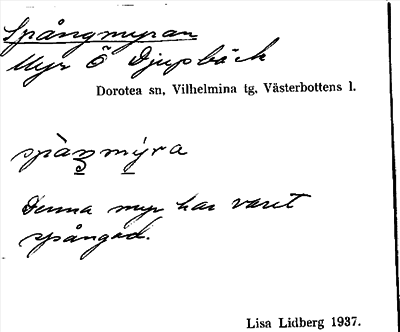 Spångmyran
Myr Ö Djupbäck
Dorotea sn, Vilhelmina tg. Västerbottens l.
spàŋmýra
Denna myr har varit
spångad.
Lisa Lidberg 1937.